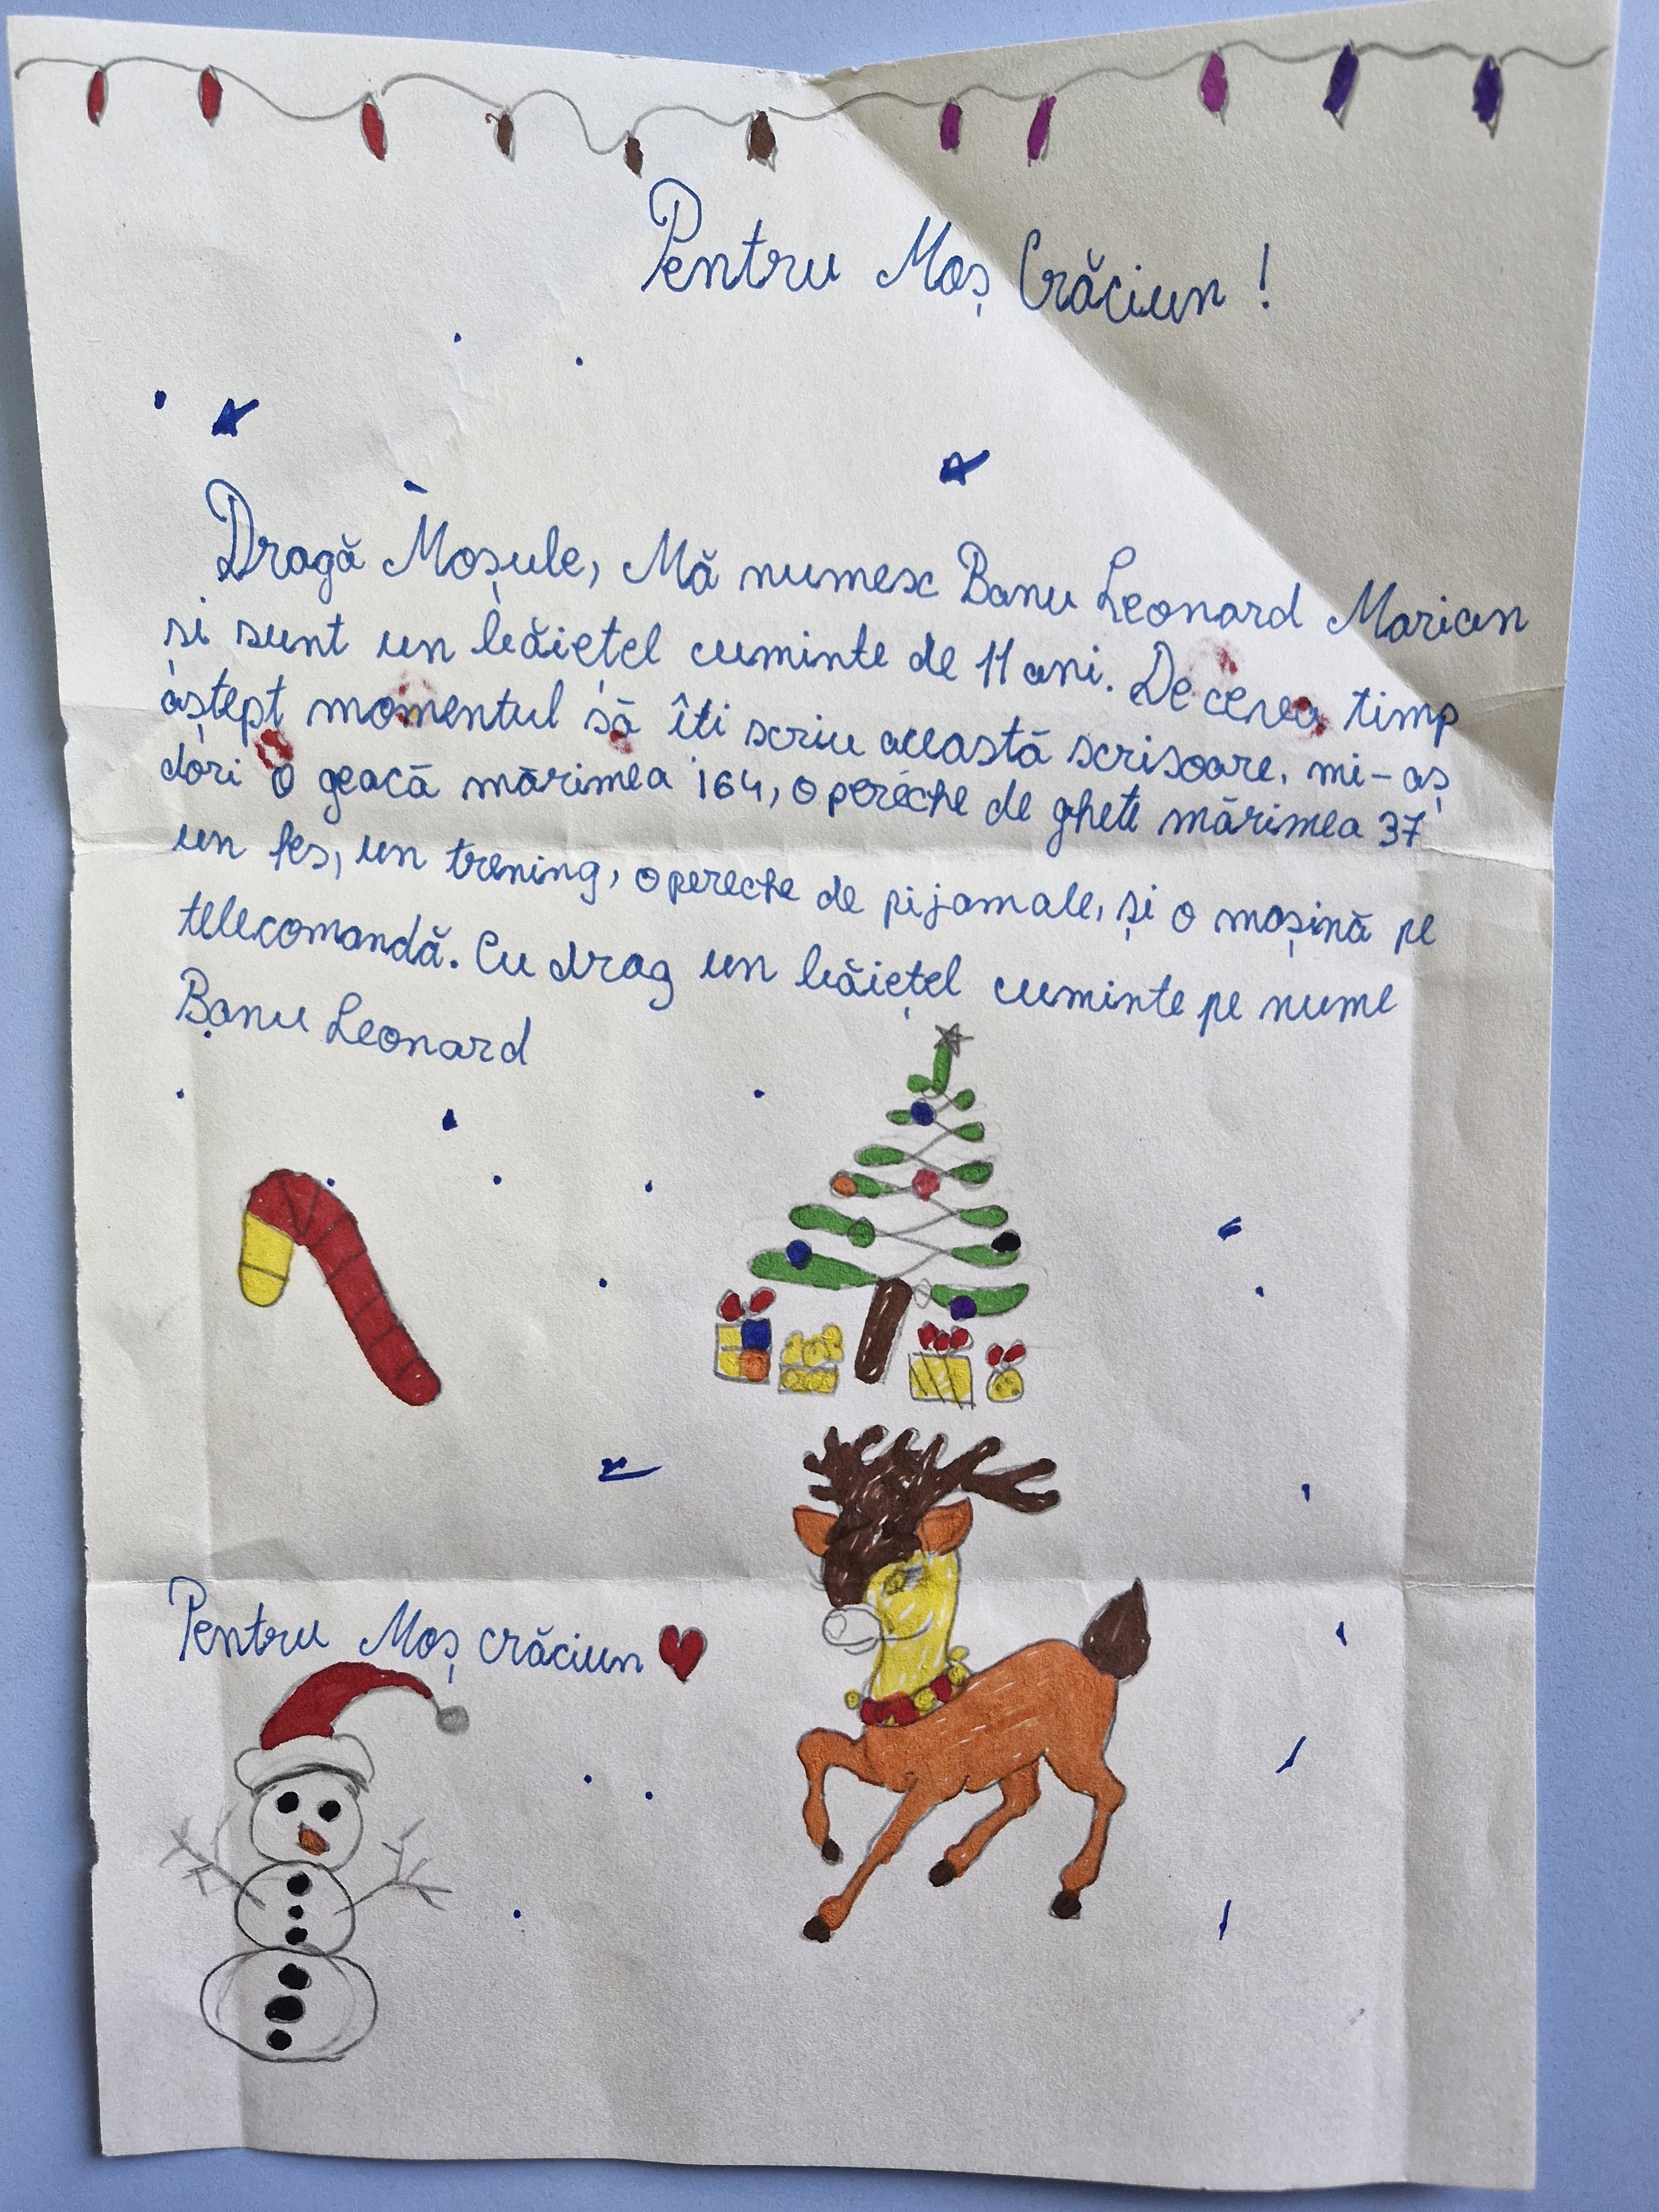 Pentru Moș Crăciun !
Dragă Moșule, Mă numesc Banu Leonard Marian
și sunt un băiețel cuminte de 11 ani. De ceva timp
aștept momentul să îti scriu această scrisoare, mi-aș
dori o geacă mărimea 164, o pereche de ghete mărimea 37
un fes, un trening, o pereche de pijamale, și o mașină pe
telecomandă. Cu drag un băiețel cuminte pe nume
Banu Leonard
Pentru Moș crăciun